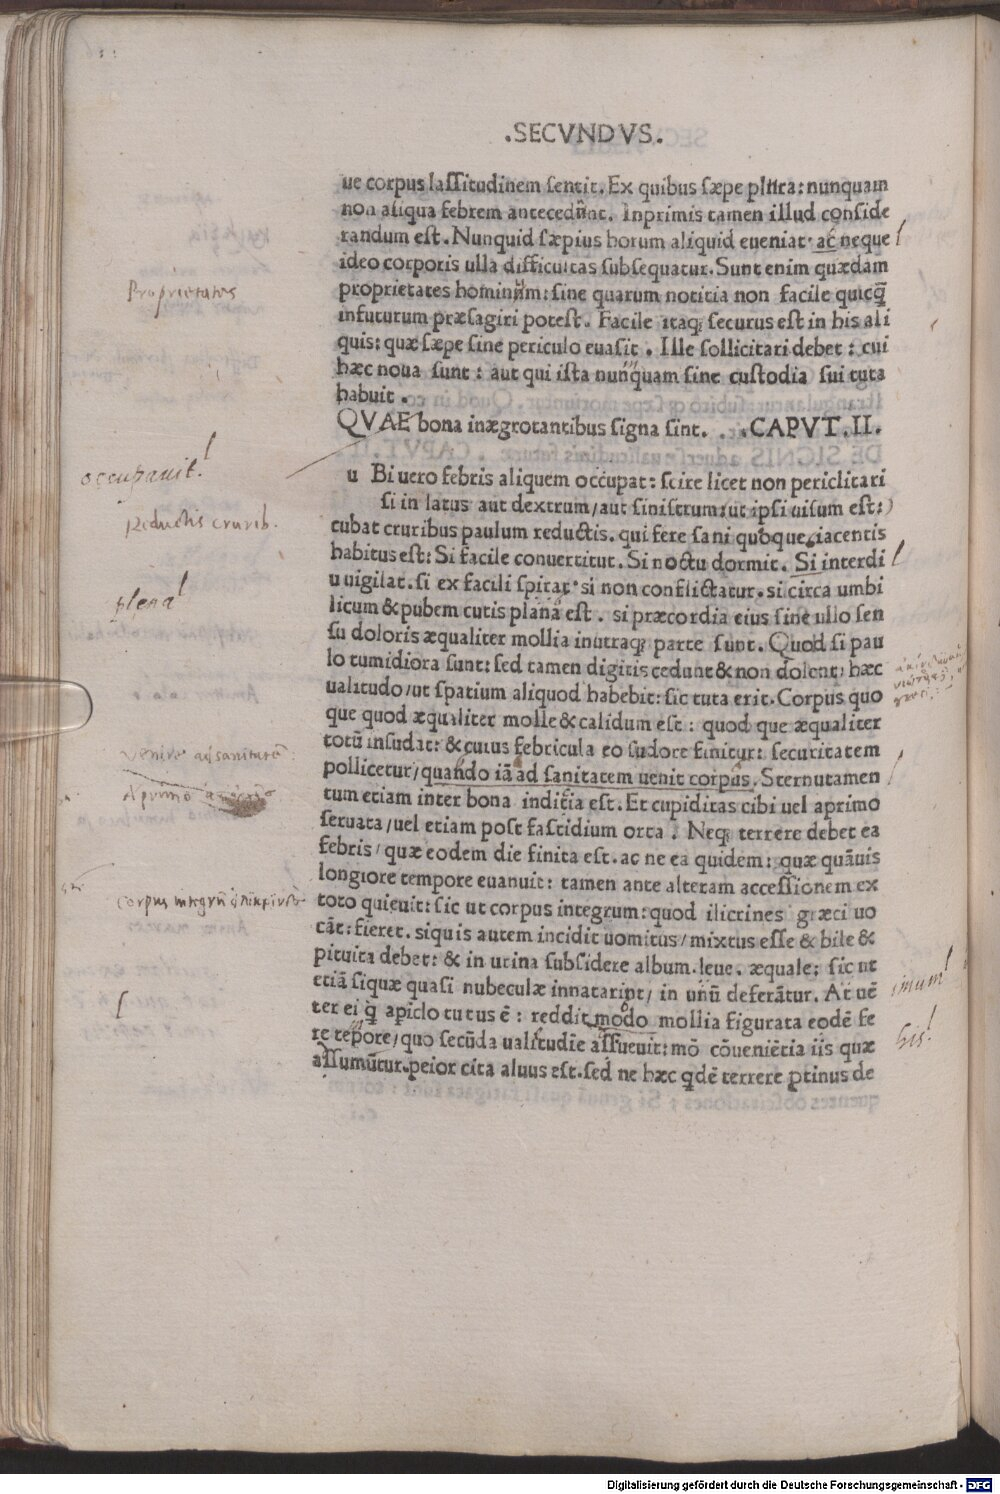 .SECVNDVS.
ue corpus lassitudinem sentit. Ex quibus sæpe plura: nunquam
non aliqua febrem antecedunt. Inprimis tamen illud conside
randum est. Nunquid sæpius horum aliquid eueniat: ac neque
ideo corporis ulla difficultas subsequatur. Sunt enim quædam
Proprietates
proprietates hominum: sine quarum notitia non facile quicq̄
infuturum præsagiri potest. Facile itaq; securus est in his ali
quis: quæ sæpe sine periculo euasit. Ille sollicitari debet: cui
hæc noua sunt: aut qui ista nunquam sine custodia sui tuta
habuit.
QVAE bona inægrotantibus signa sint. .CAPVT.II.
occupauit!
u Bi uero febris aliquem occupat: scire licet non periclitari
si in latus aut dextrum/aut sinistrum:ut ipsi uisum est:)
reductis crurib.
cubat cruribus paulum reductis. qui fere sani quoque iacentis
habitus est: Si facile conuertitur. Si noctu dormit. Si interdi
u uigilat. si ex facili spirat. si non conflictatur. si circa umbi
plena!
licum & pubem cutis plana est. si præcordia eius sine ullo sen
su doloris æqualiter mollia inutraq; parte sunt. Quod si pau
lo tumidiora sunt: sed tamen digitis cedunt & non dolent: hæc
ualitudo/ut spatium aliquod habebit: sic tuta erit. Corpus quo
que quod æqualiter molle & calidum est: quod que æqualiter
totū insudat: & cuius febricula eo sudore finitur: securitatem
venire ad sanitatē
pollicetur/quando iā ad sanitatem uenit corpus. Sternutamen
tum etiam inter bona inditia est. Et cupiditas cibi uel aprimo
seruata/uel etiam post fastidium orta. Neq; terrere debet ea
febris/ quæ eodem die finita est. ac ne ea quidem: quæ quāuis
longiore tempore euanuit: tamen ante alteram accessionem ex
corpus integrū
toto quieuit: sic ut corpus integrum: quod ilicrines græci uo
cāt: fieret. siquis autem incidit uomitus/ mixtus esse & bile &
pituita debet: & in urina subsidere album. leue. æquale: sic ut
etiā siquæ quasi nubeculæ innatarint/ in unū deferātur. At uē
imum!
ter ei q̄ apiclo tutus ē: reddit modo mollia figurata eodē fe
his!
re tēpore/quo secūda ualitudie assueuit: mō cōueniētia iis quæ
assumūtur. peior cita aluus est. sed ne hæc qdē terrere ptinus de
Digitalisierung gefördert durch die Deutsche Forschungsgemeinschaft - DFG